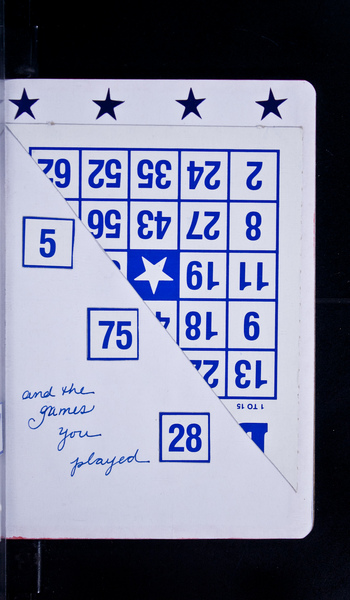 62 52 35 24 2
56 43 27 8
5
19 11
18 9
75
22 13
and the
games
you
played
1 TO 15
28